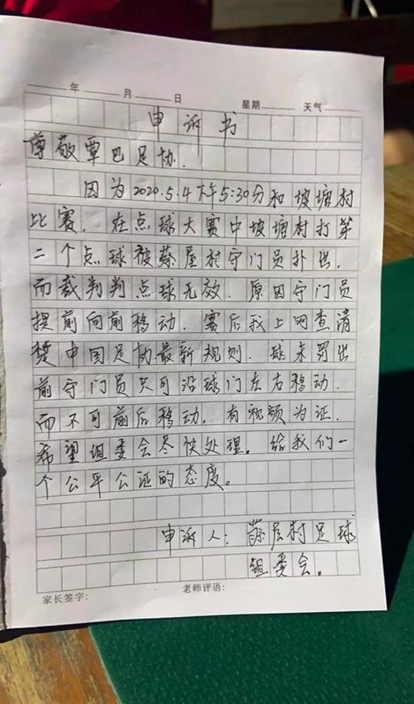 年 月 日 星期 天气
申诉书
尊敬覃巴足协.
因为2020.5.4下午5:30分和坡塘村
比赛. 在点球大赛中坡塘村打第
二个点球被藤屋村守门员扑出.
而裁判判点球无效. 原因守门员
提前向前移动. 赛后我上网查清
楚中国足协最新规则. 球未罚出
前守门员只可沿球门左右移动.
而不可前后移动. 有视频为证.
希望组委会尽快处理. 给我们一
个公平公证的态度。
申诉人: 藤屋村足球
组委会。
家长签字: 老师评语: